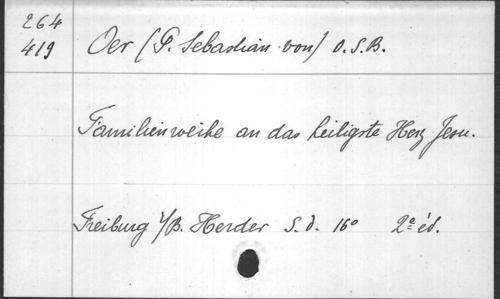 264
419
Oer (P. Sebastian von) O.S.B.
Familienweihe an das heiligste Herz Jesu.
Freiburg i/B. Herder S. d. 16° 2e éd.